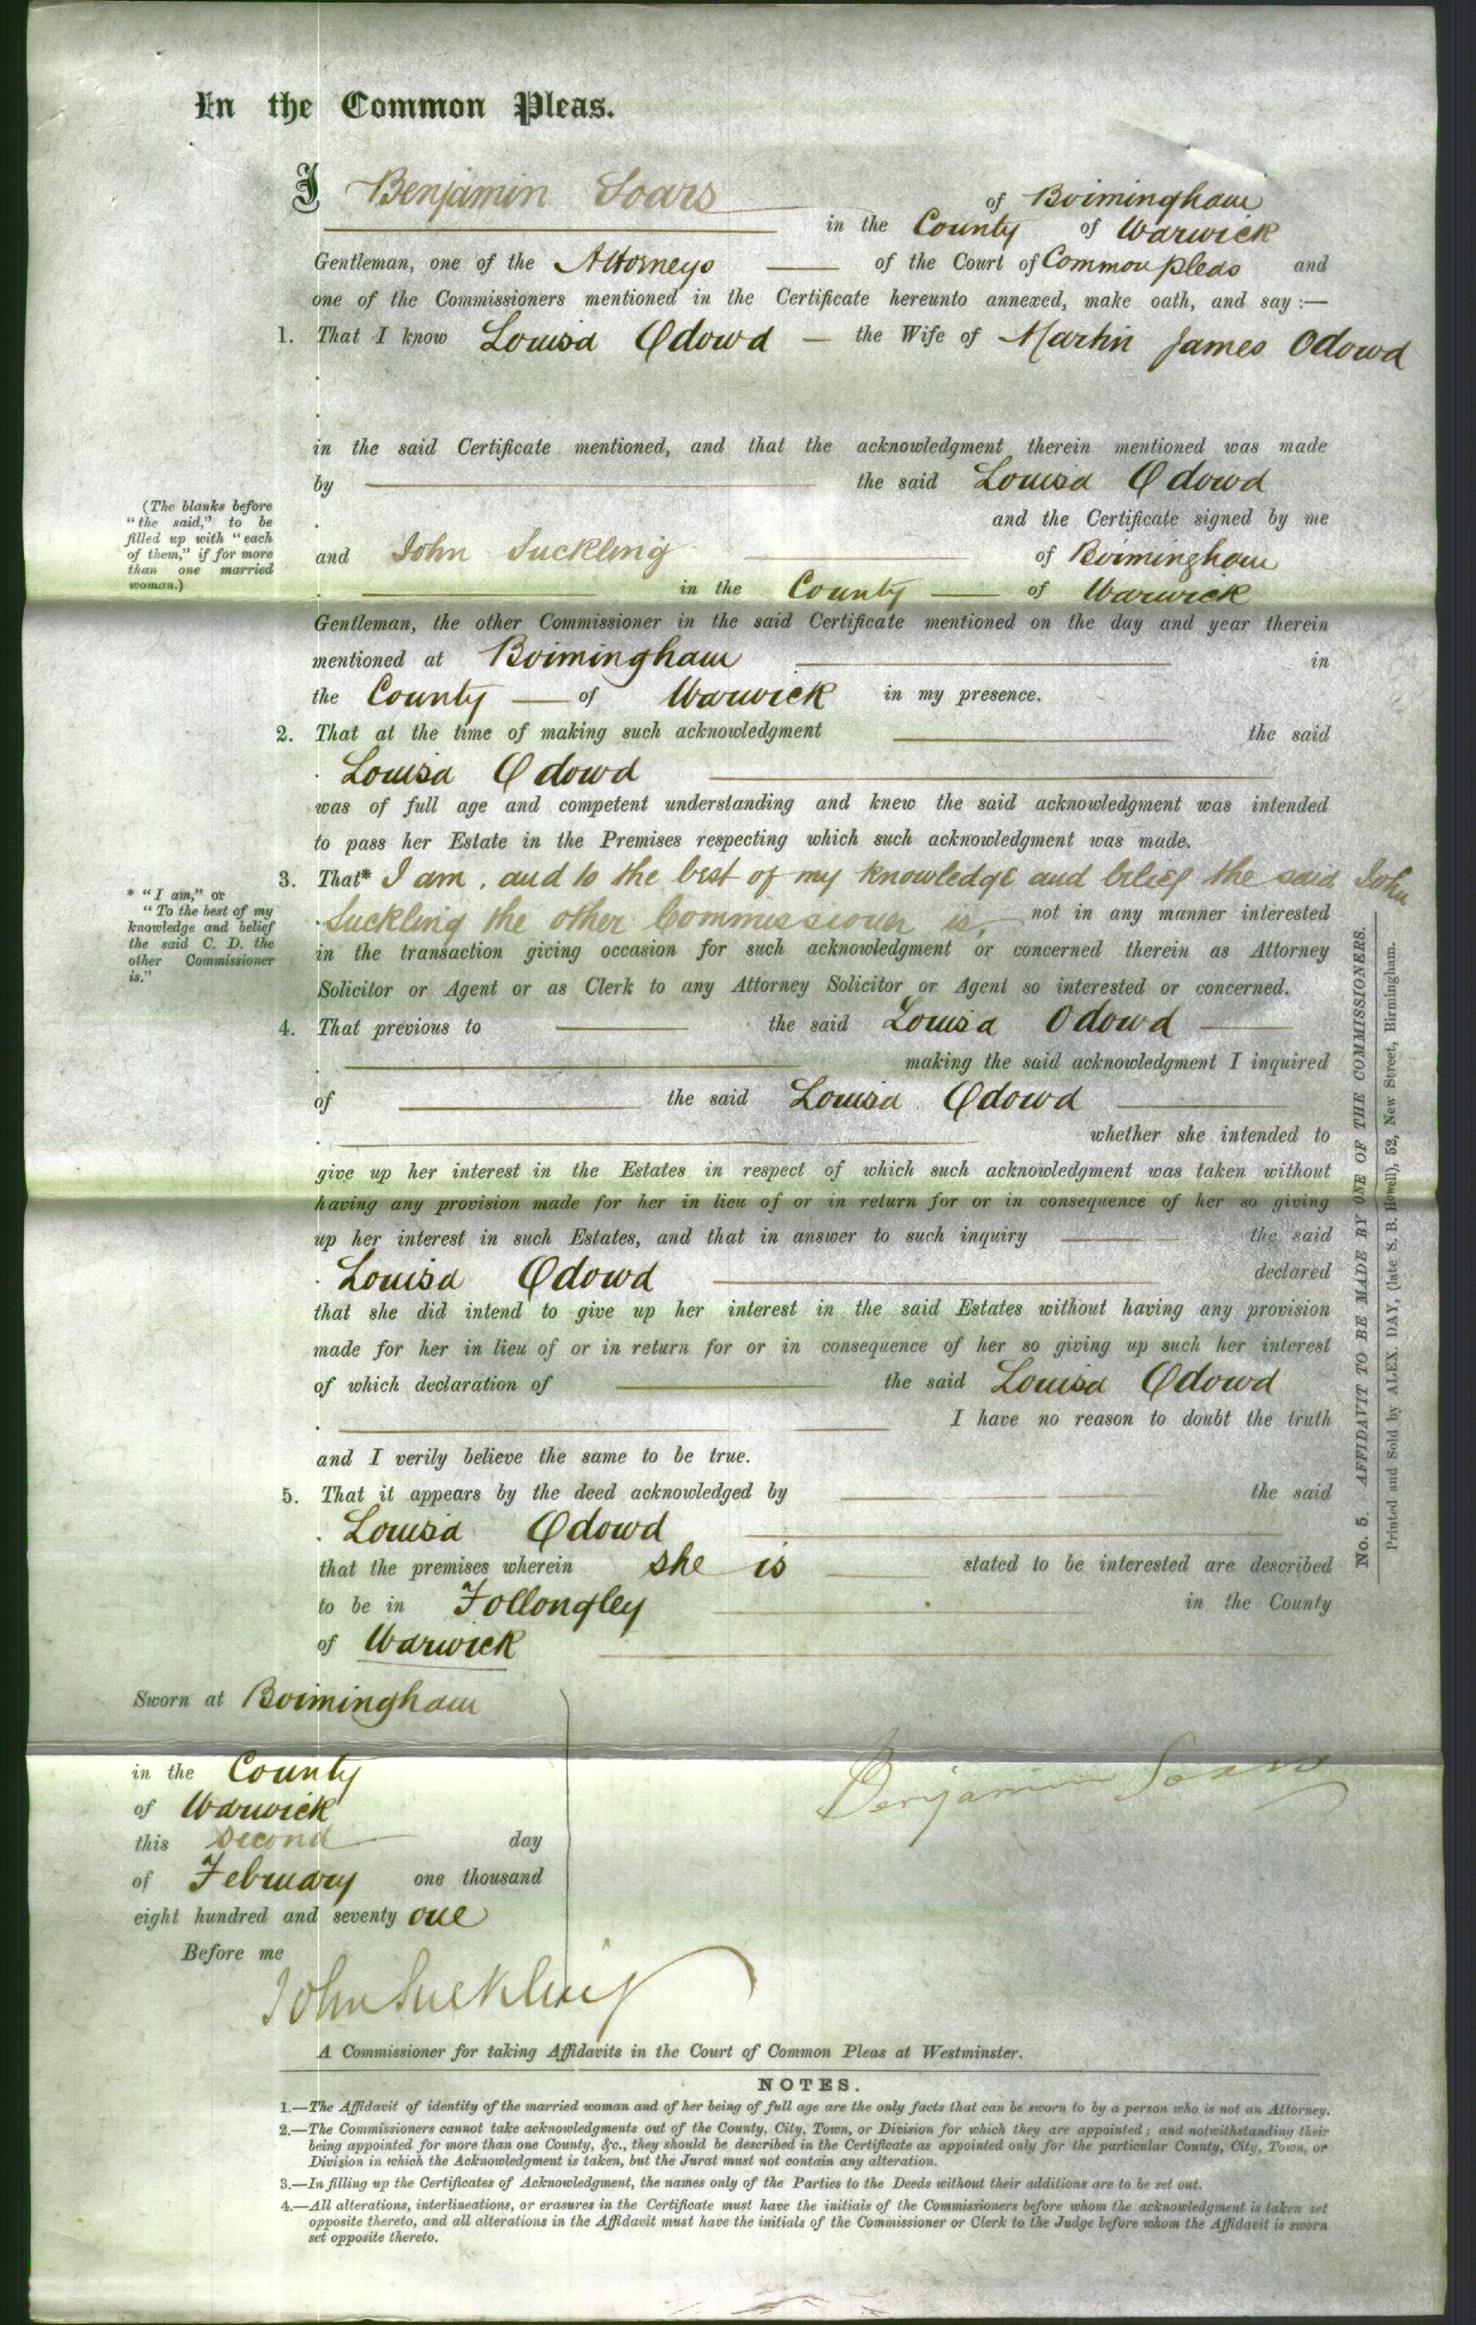 In the Common Pleas.
I Benjamin Soars of Birmingham
in the County of Warwick
Gentleman, one of the Attorneys of the Court of Common pleas and
one of the Commissioners mentioned in the Certificate hereunto annexed, make oath, and say :—
1. That I know Louisa Odowd — the Wife of Martin James Odowd
in the said Certificate mentioned, and that the acknowledgment therein mentioned was made
by the said Louisa Odowd
and the Certificate signed by me
(The blanks before
"the said," to be
filled up with "each
of them," if for more
than one married
woman.)
and John Suckling of Birmingham
in the County of Warwick
Gentleman, the other Commissioner in the said Certificate mentioned on the day and year therein
mentioned at Birmingham in
the County of Warwick in my presence.
2. That at the time of making such acknowledgment the said
Louisa Odowd
was of full age and competent understanding and knew the said acknowledgment was intended
to pass her Estate in the Premises respecting which such acknowledgment was made.
3. That* I am, and to the best of my knowledge and belief the said John
Suckling the other Commissioner is, not in any manner interested
* "I am," or
"To the best of my
knowledge and belief
the said C. D. the
other Commissioner
is."
in the transaction giving occasion for such acknowledgment or concerned therein as Attorney
Solicitor or Agent or as Clerk to any Attorney Solicitor or Agent so interested or concerned.
4. That previous to the said Louisa Odowd
making the said acknowledgment I inquired
of the said Louisa Odowd
whether she intended to
give up her interest in the Estates in respect of which such acknowledgment was taken without
having any provision made for her in lieu of or in return for or in consequence of her so giving
up her interest in such Estates, and that in answer to such inquiry the said
Louisa Odowd declared
that she did intend to give up her interest in the said Estates without having any provision
made for her in lieu of or in return for or in consequence of her so giving up such her interest
of which declaration of the said Louisa Odowd
I have no reason to doubt the truth
and I verily believe the same to be true.
5. That it appears by the deed acknowledged by the said
Louisa Odowd
that the premises wherein she is stated to be interested are described
to be in Follongley in the County
of Warwick
Sworn at Birmingham
in the County
of Warwick
this second day
of February one thousand
eight hundred and seventy one
Benjamin Soars
Before me
John Suckling
A Commissioner for taking Affidavits in the Court of Common Pleas at Westminster.
NOTES.
1.—The Affidavit of identity of the married woman and of her being of full age are the only facts that can be sworn to by a person who is not an Attorney.
2.—The Commissioners cannot take acknowledgments out of the County, City, Town, or Division for which they are appointed; and notwithstanding their
being appointed for more than one County, &c., they should be described in the Certificate as appointed only for the particular County, City, Town, or
Division in which the Acknowledgment is taken, but the Jurat must not contain any alteration.
3.—In filling up the Certificates of Acknowledgment, the names only of the Parties to the Deeds without their additions are to be set out.
4.—All alterations, interlineations, or erasures in the Certificate must have the initials of the Commissioners before whom the acknowledgment is taken set
opposite thereto, and all alterations in the Affidavit must have the initials of the Commissioner or Clerk to the Judge before whom the Affidavit is sworn
set opposite thereto.
No. 5. AFFIDAVIT TO BE MADE BY ONE OF THE COMMISSIONERS.
Printed and Sold by ALEX. DAY, (late S. B. Howell), 52, New Street, Birmingham.